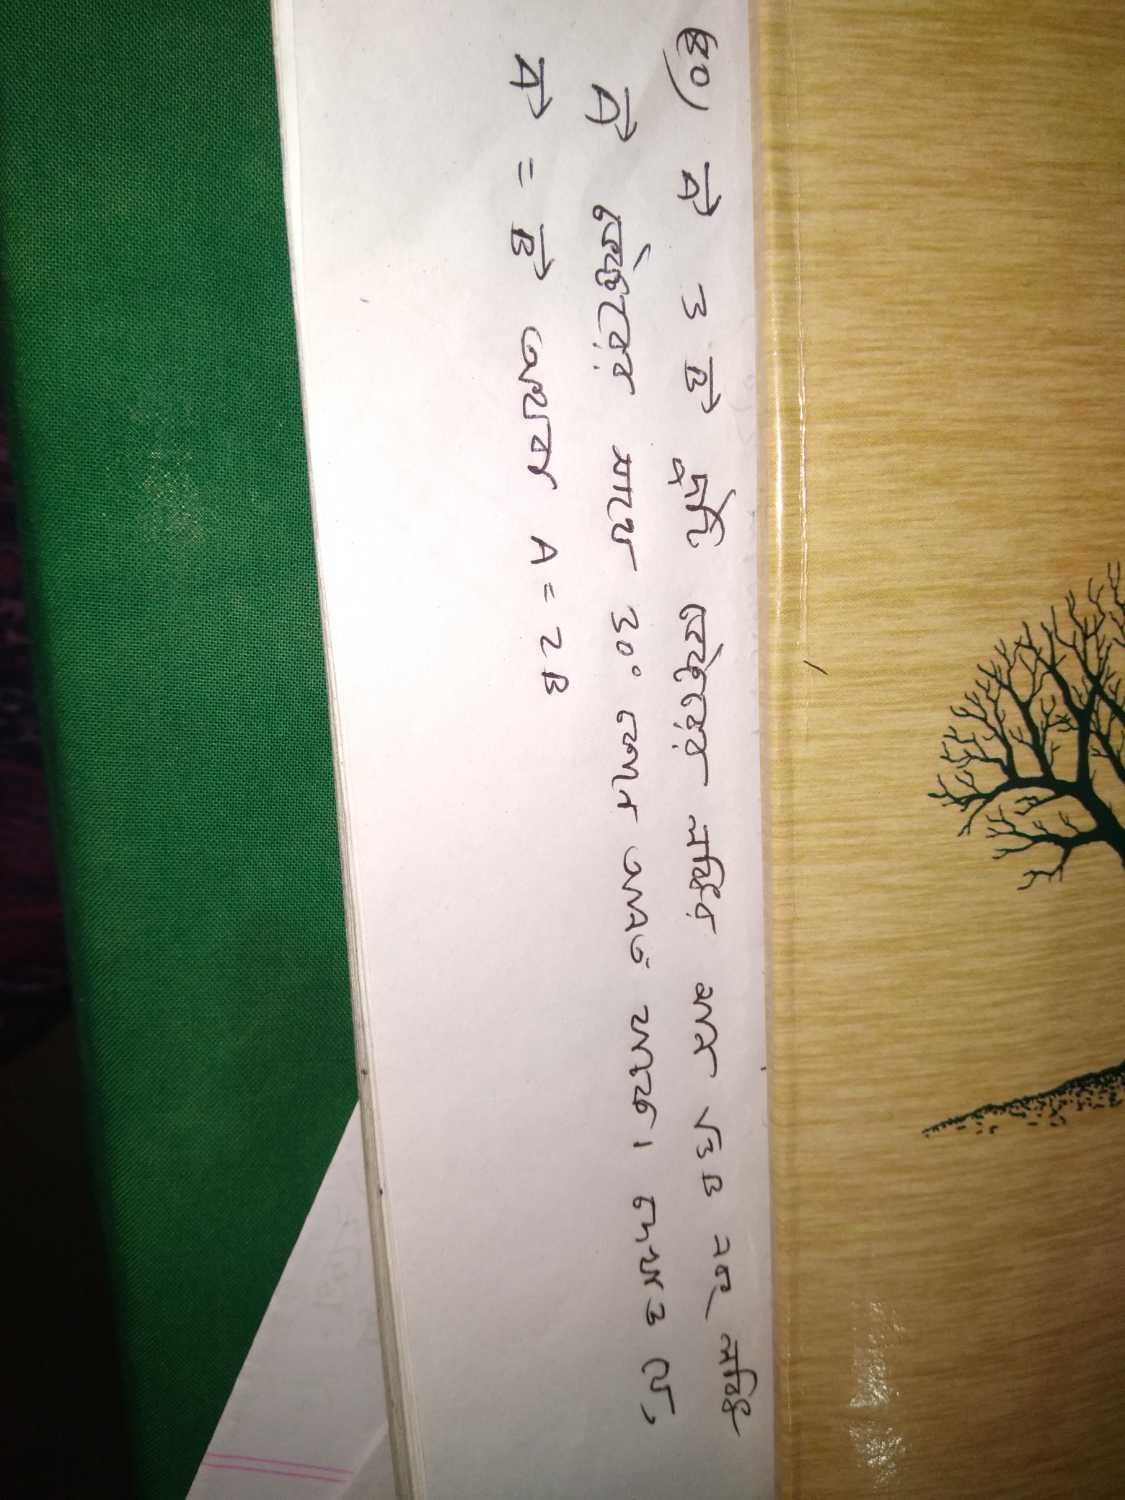 ৪০) A⃗ ও B⃗ দুটি ভেক্টরের লব্ধির মান √3 B এবং লব্ধি
A⃗ ভেক্টরের সাথে 30° কোণ উৎপন্ন করে। দেখাও যে,
A⃗ = B⃗ অথবা A = 2B